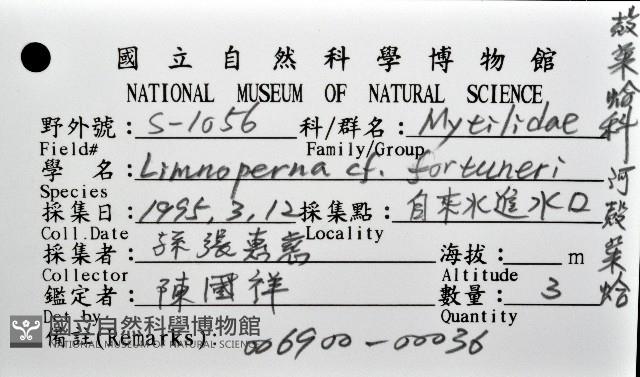 國立自然科學博物館
NATIONAL MUSEUM OF NATURAL SCIENCE
野外號:S-1056 科/群名:Mytilidae
Field# Family/Group
學 名:Limnoperna cf. fortuneri
Species
採集日:1995.3.12 採集點:自來水進水口
Coll.Date Locality
採集者:孫張惠 海拔: m
Collector Altitude
鑑定者:陳國祥 數量:3
Det by Quantity
備註(Remarks): 006900-00036
國立自然科學博物館
NATIONAL MUSEUM OF NATURAL SCIENCE
殼菜蛤科 河殼菜蛤